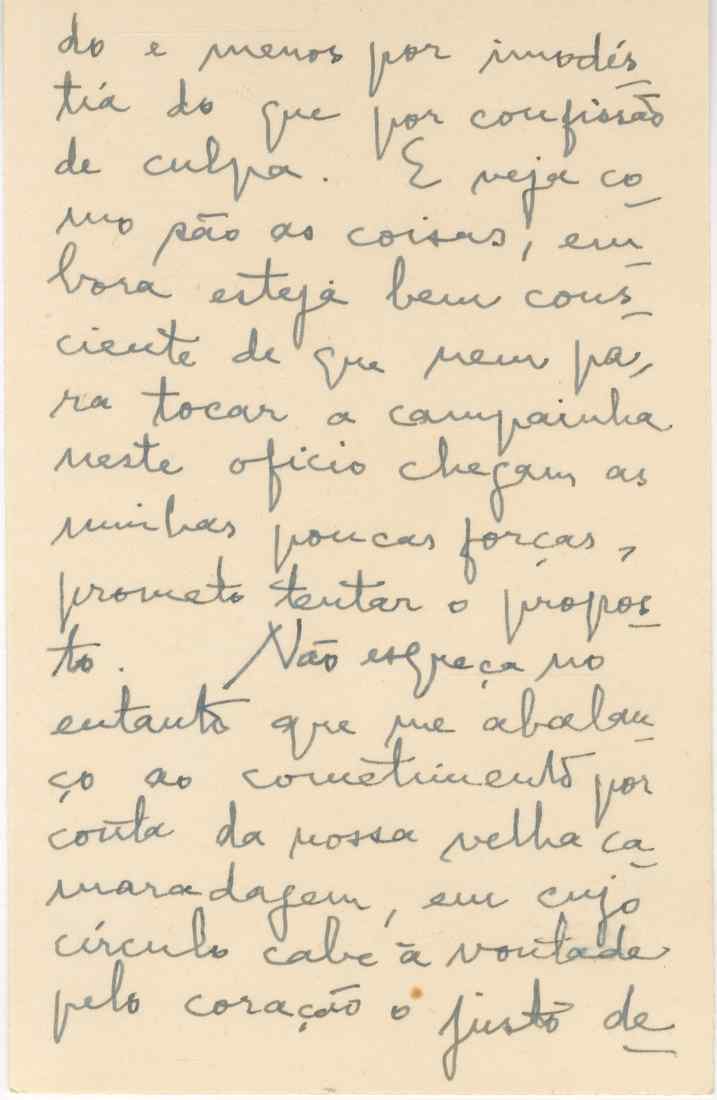 do e menos por imodés-
tia do que por confissão
de culpa. E veja co-
mo são as coisas, em-
bora esteja bem cons-
ciente de que nem pa-
ra tocar a campainha
neste oficio chegam as
minhas poucas forças,
prometo tentar o propos-
to. Não esqueça no
entanto que me abalan-
ço ao cometimento por
conta da nossa velha ca-
maradagem, em cujo
círculo cabe à vontade
pelo coração o justo de-